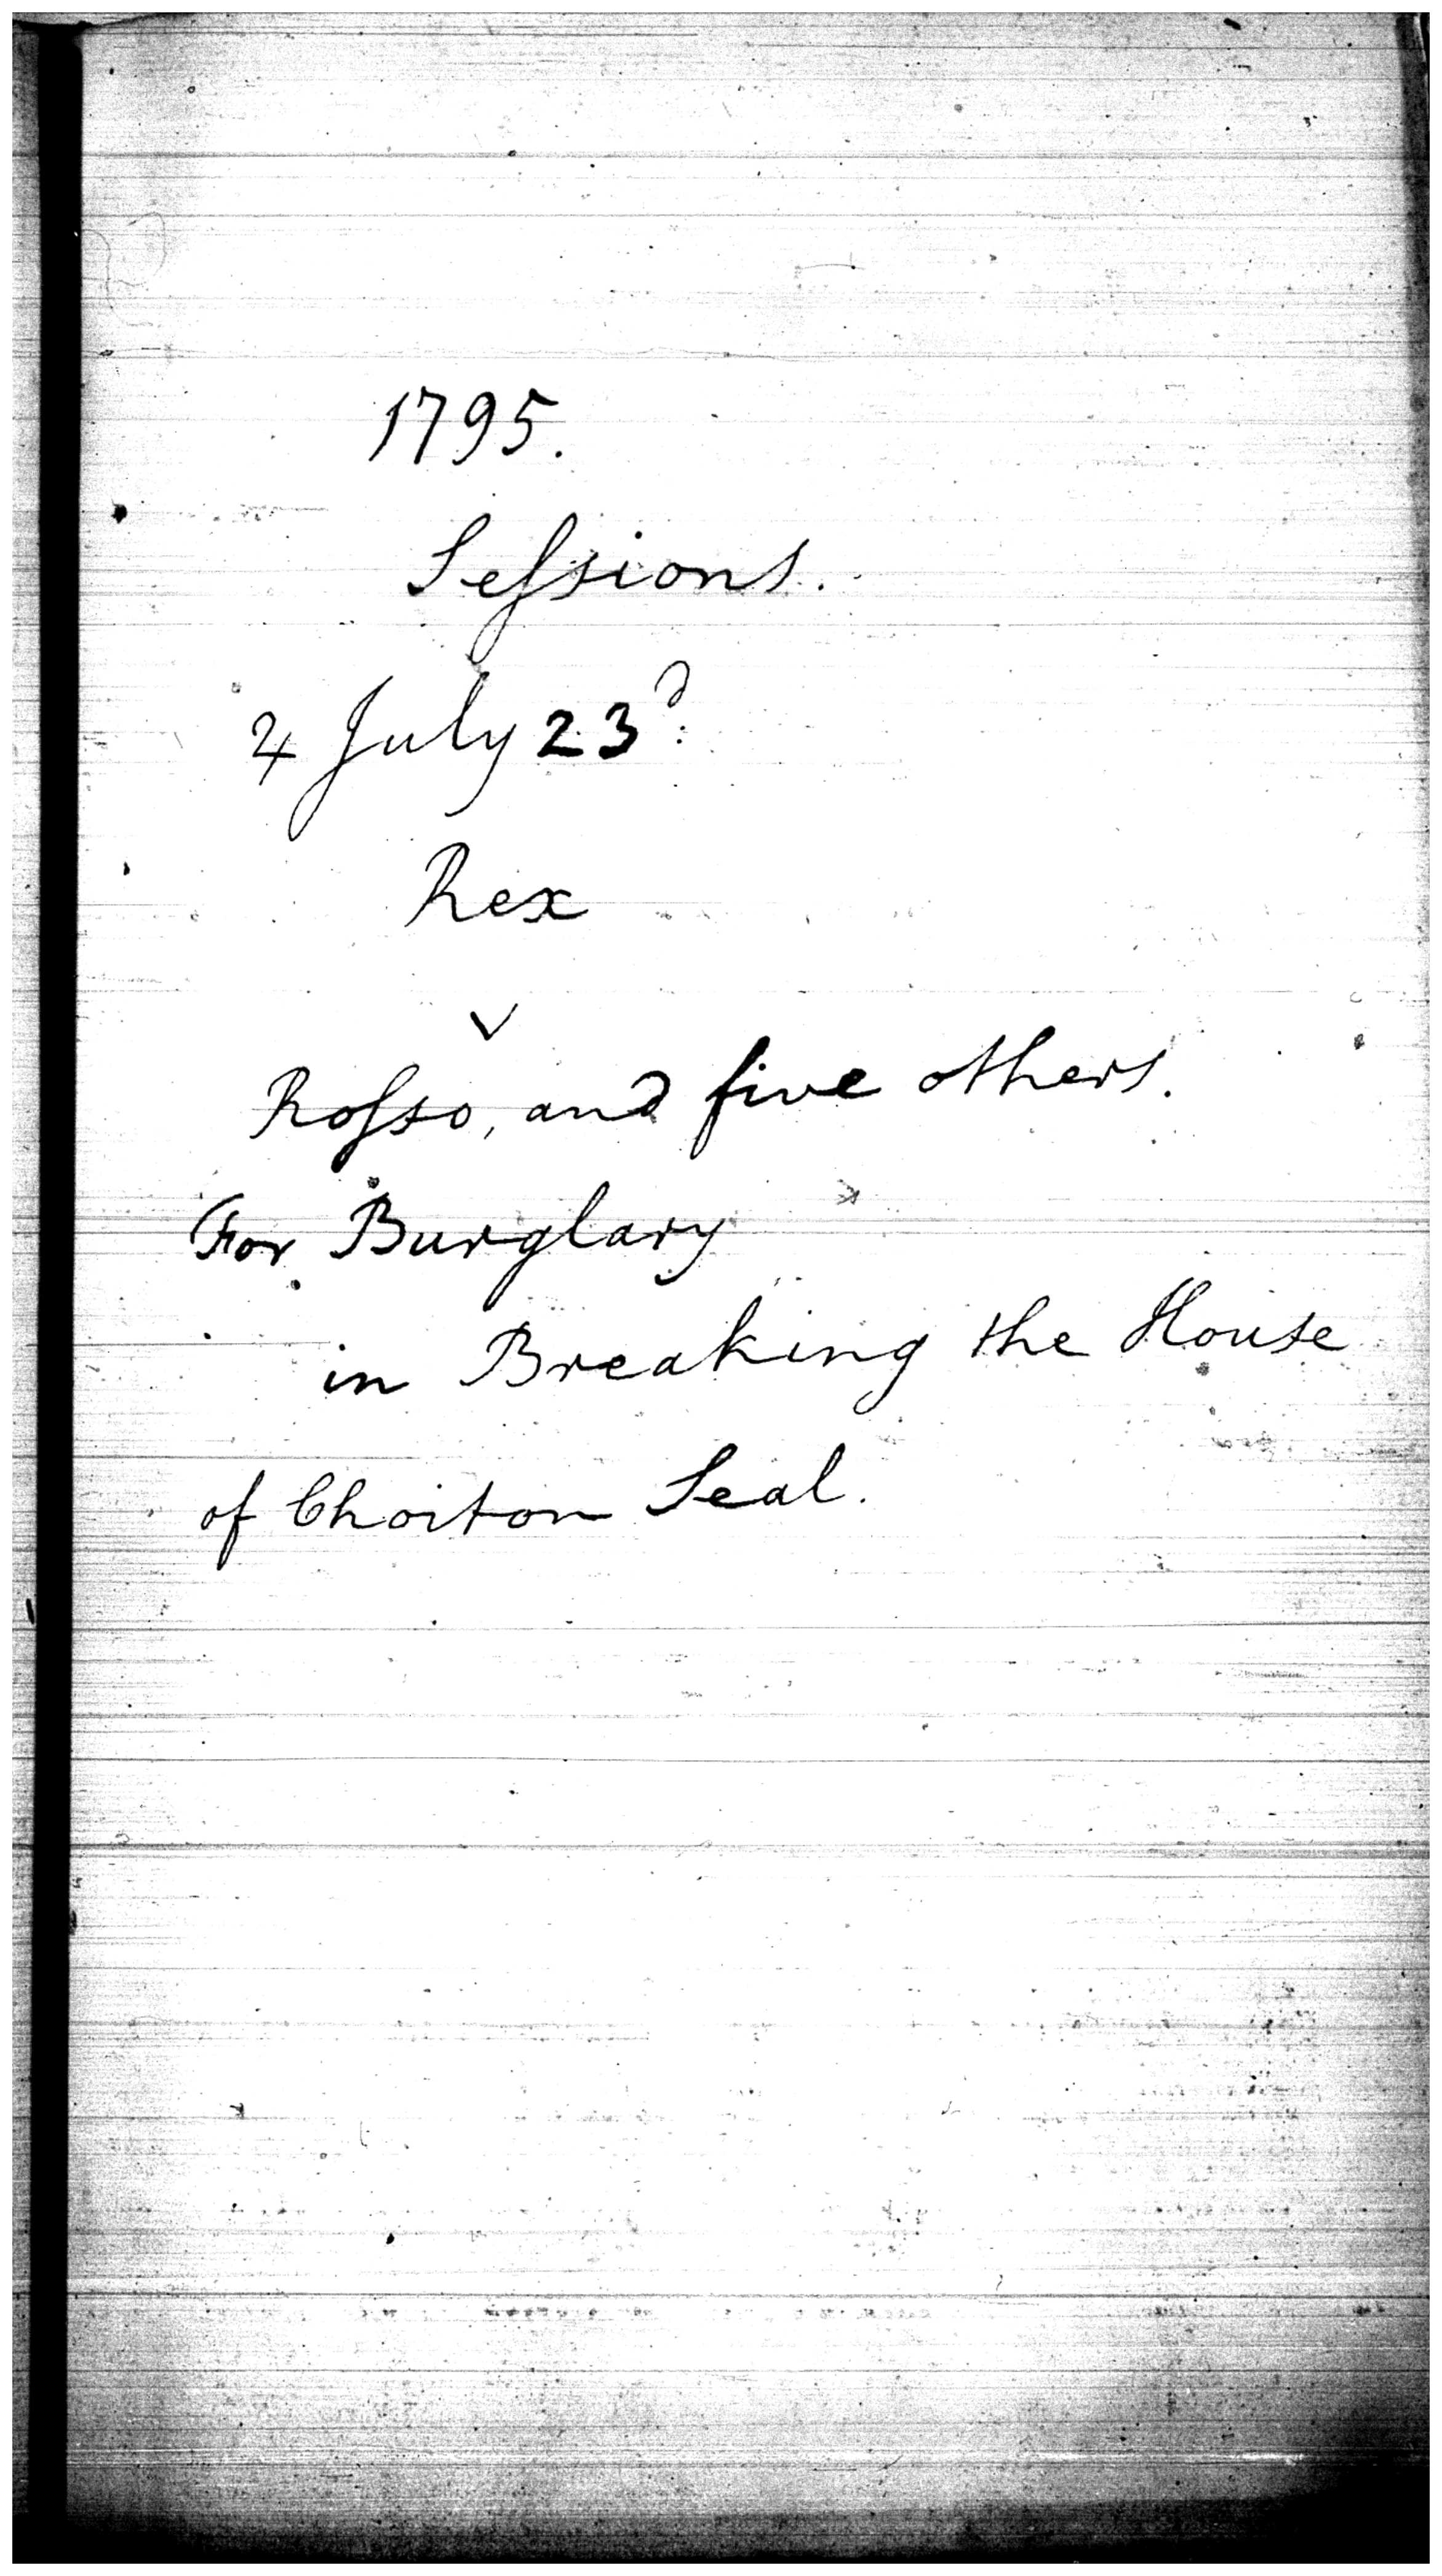 1795.
Seſsions.
♃ July 23d:
Rex
v
Roſso, and five others.
For Burglary
in Breaking the House
of Choiton Seal.